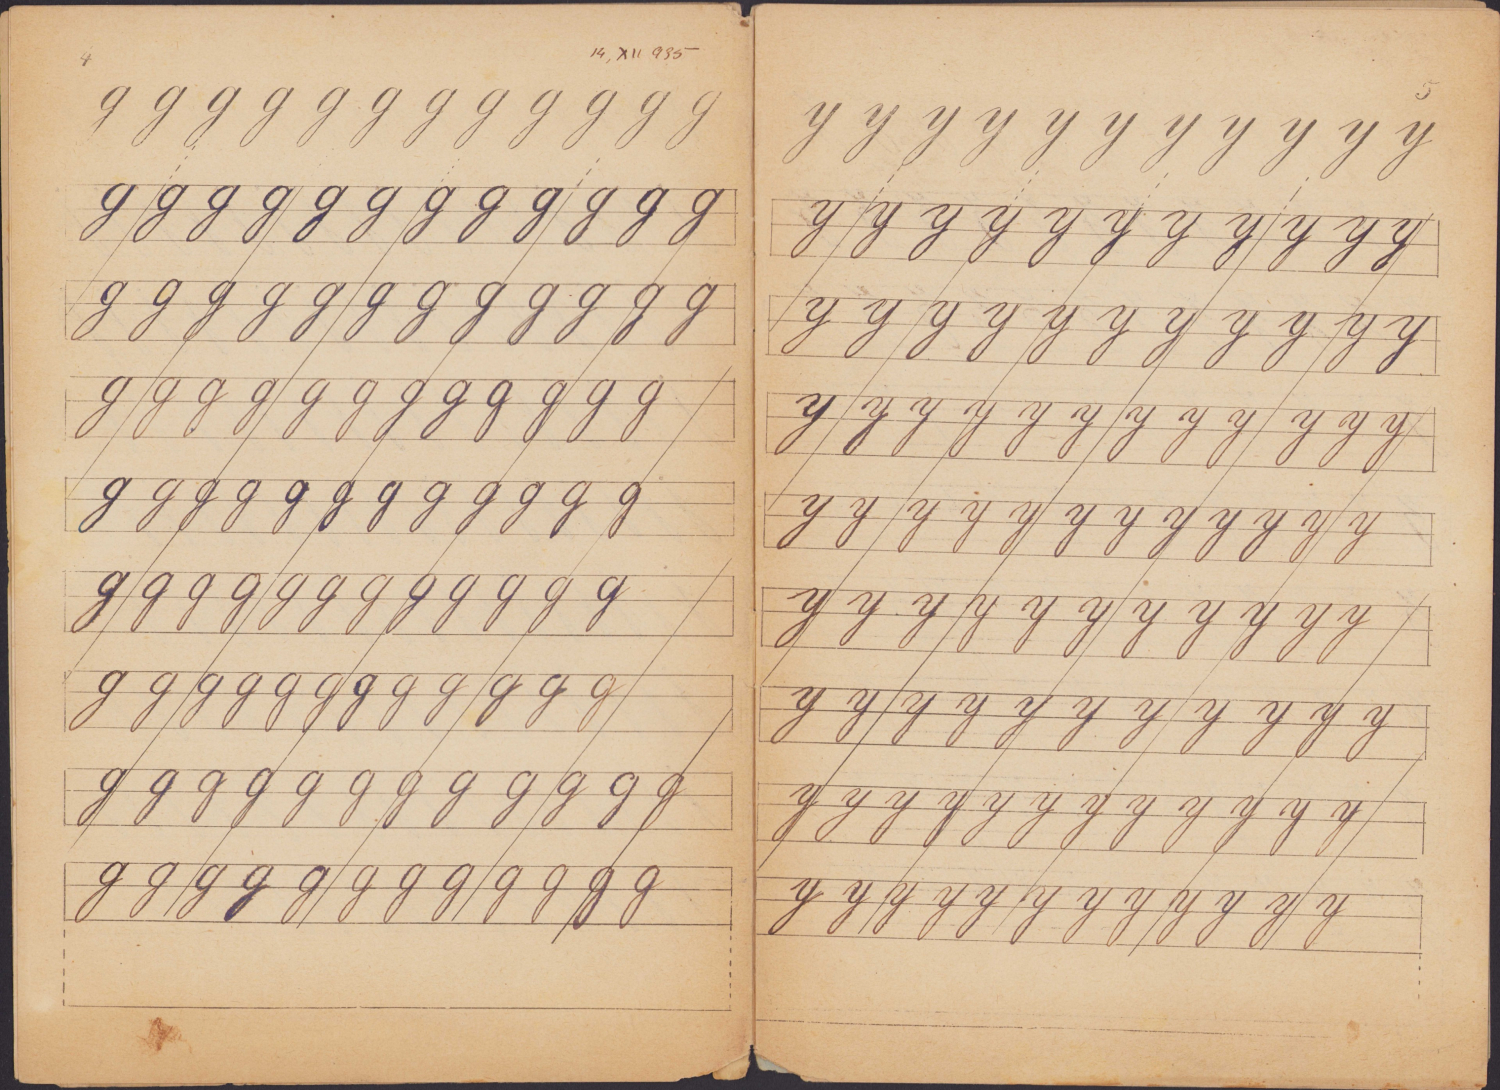 4
14, XII 935
g g g g g g g g g g g g
g g g g g g g g g g g g
g g g g g g g g g g g g
g g g g g g g g g g g g
g g g g g g g g g g g g
g g g g g g g g g g g g
g g g g g g g g g g g g
g g g g g g g g g g g g
g g g g g g g g g g g g
5
y y y y y y y y y y y
y y y y y y y y y y y
y y y y y y y y y y y
y y y y y y y y y y y y
y y y y y y y y y y y y
y y y y y y y y y y y
y y y y y y y y y y y
y y y y y y y y y y y y
y y y y y y y y y y y y